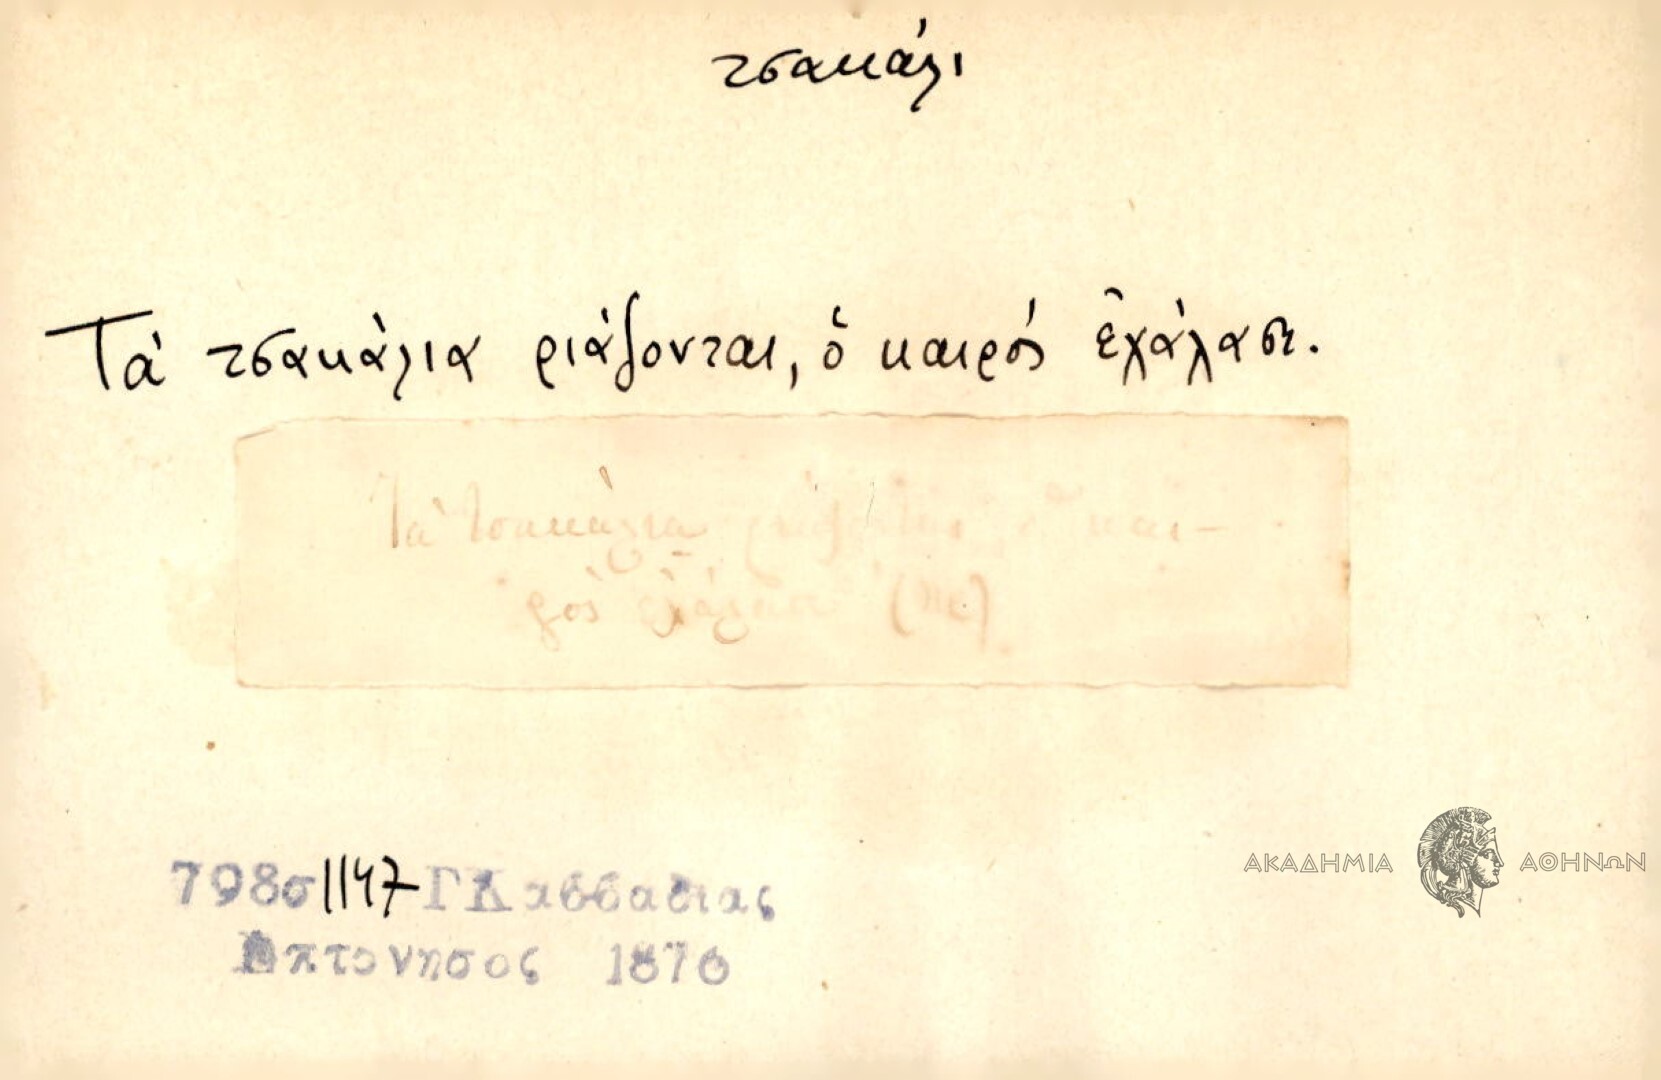 τσακάλι
Τὰ τσακάλια ριάζονται, ὁ καιρός ἐχάλασε.
Τὰ τσακκάλια ὁ και-
ρὸς ἐχάλασε
798σ 1147 ΓΚαββαδιας
Επτονησος 1876
ΑΚΑΔΗΜΙΑ ΑΘΗΝΩΝ